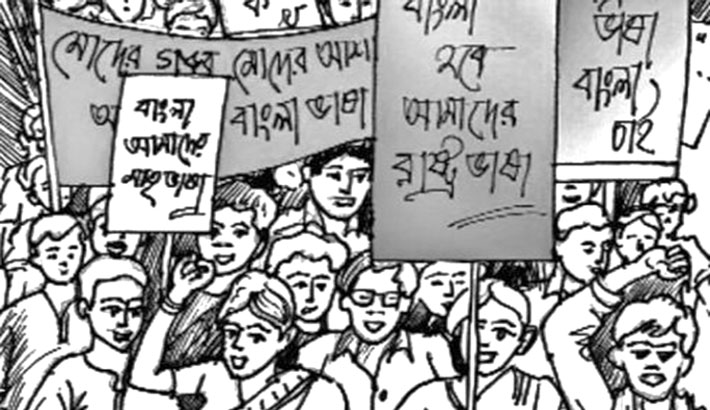 ক খ
মোদের গরব মোদের আশা
আ
বাংলা ভাষা
বাংলা
আমাদের
মাতৃভাষা
বাংলা
হবে
আমাদের
রাষ্ট্র ভাষা
ভাষা
বাংলা
চাই